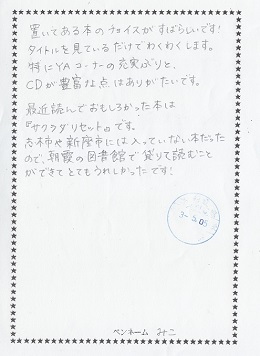 置いてある本のチョイスがすばらしいです!
タイトルを見ているだけでわくわくします。
特にYAコーナーの充実ぶりと、
CDが豊富な点はありがたいです。
最近読んでおもしろかった本は
『サクラダリセット』です。
志木市や新座市には入っていない本だった
ので、朝霞の図書館で借りて読むこと
ができてとてもうれしかったです!
ペンネーム みこ